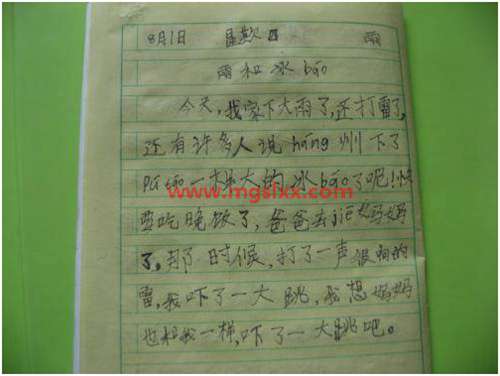 8月1日 星期 雨
雨和冰báo
今天,我家下大雨了,还打雷了,
还有许多人说háng州下了
一样大的冰báo了呢!快
www.mgslxx.com
要吃晚饭了,爸爸去jiē妈妈
了,那时候,打了一声很响的
雷,我吓了一大跳,我想妈妈
也和我一样,吓了一大跳吧。